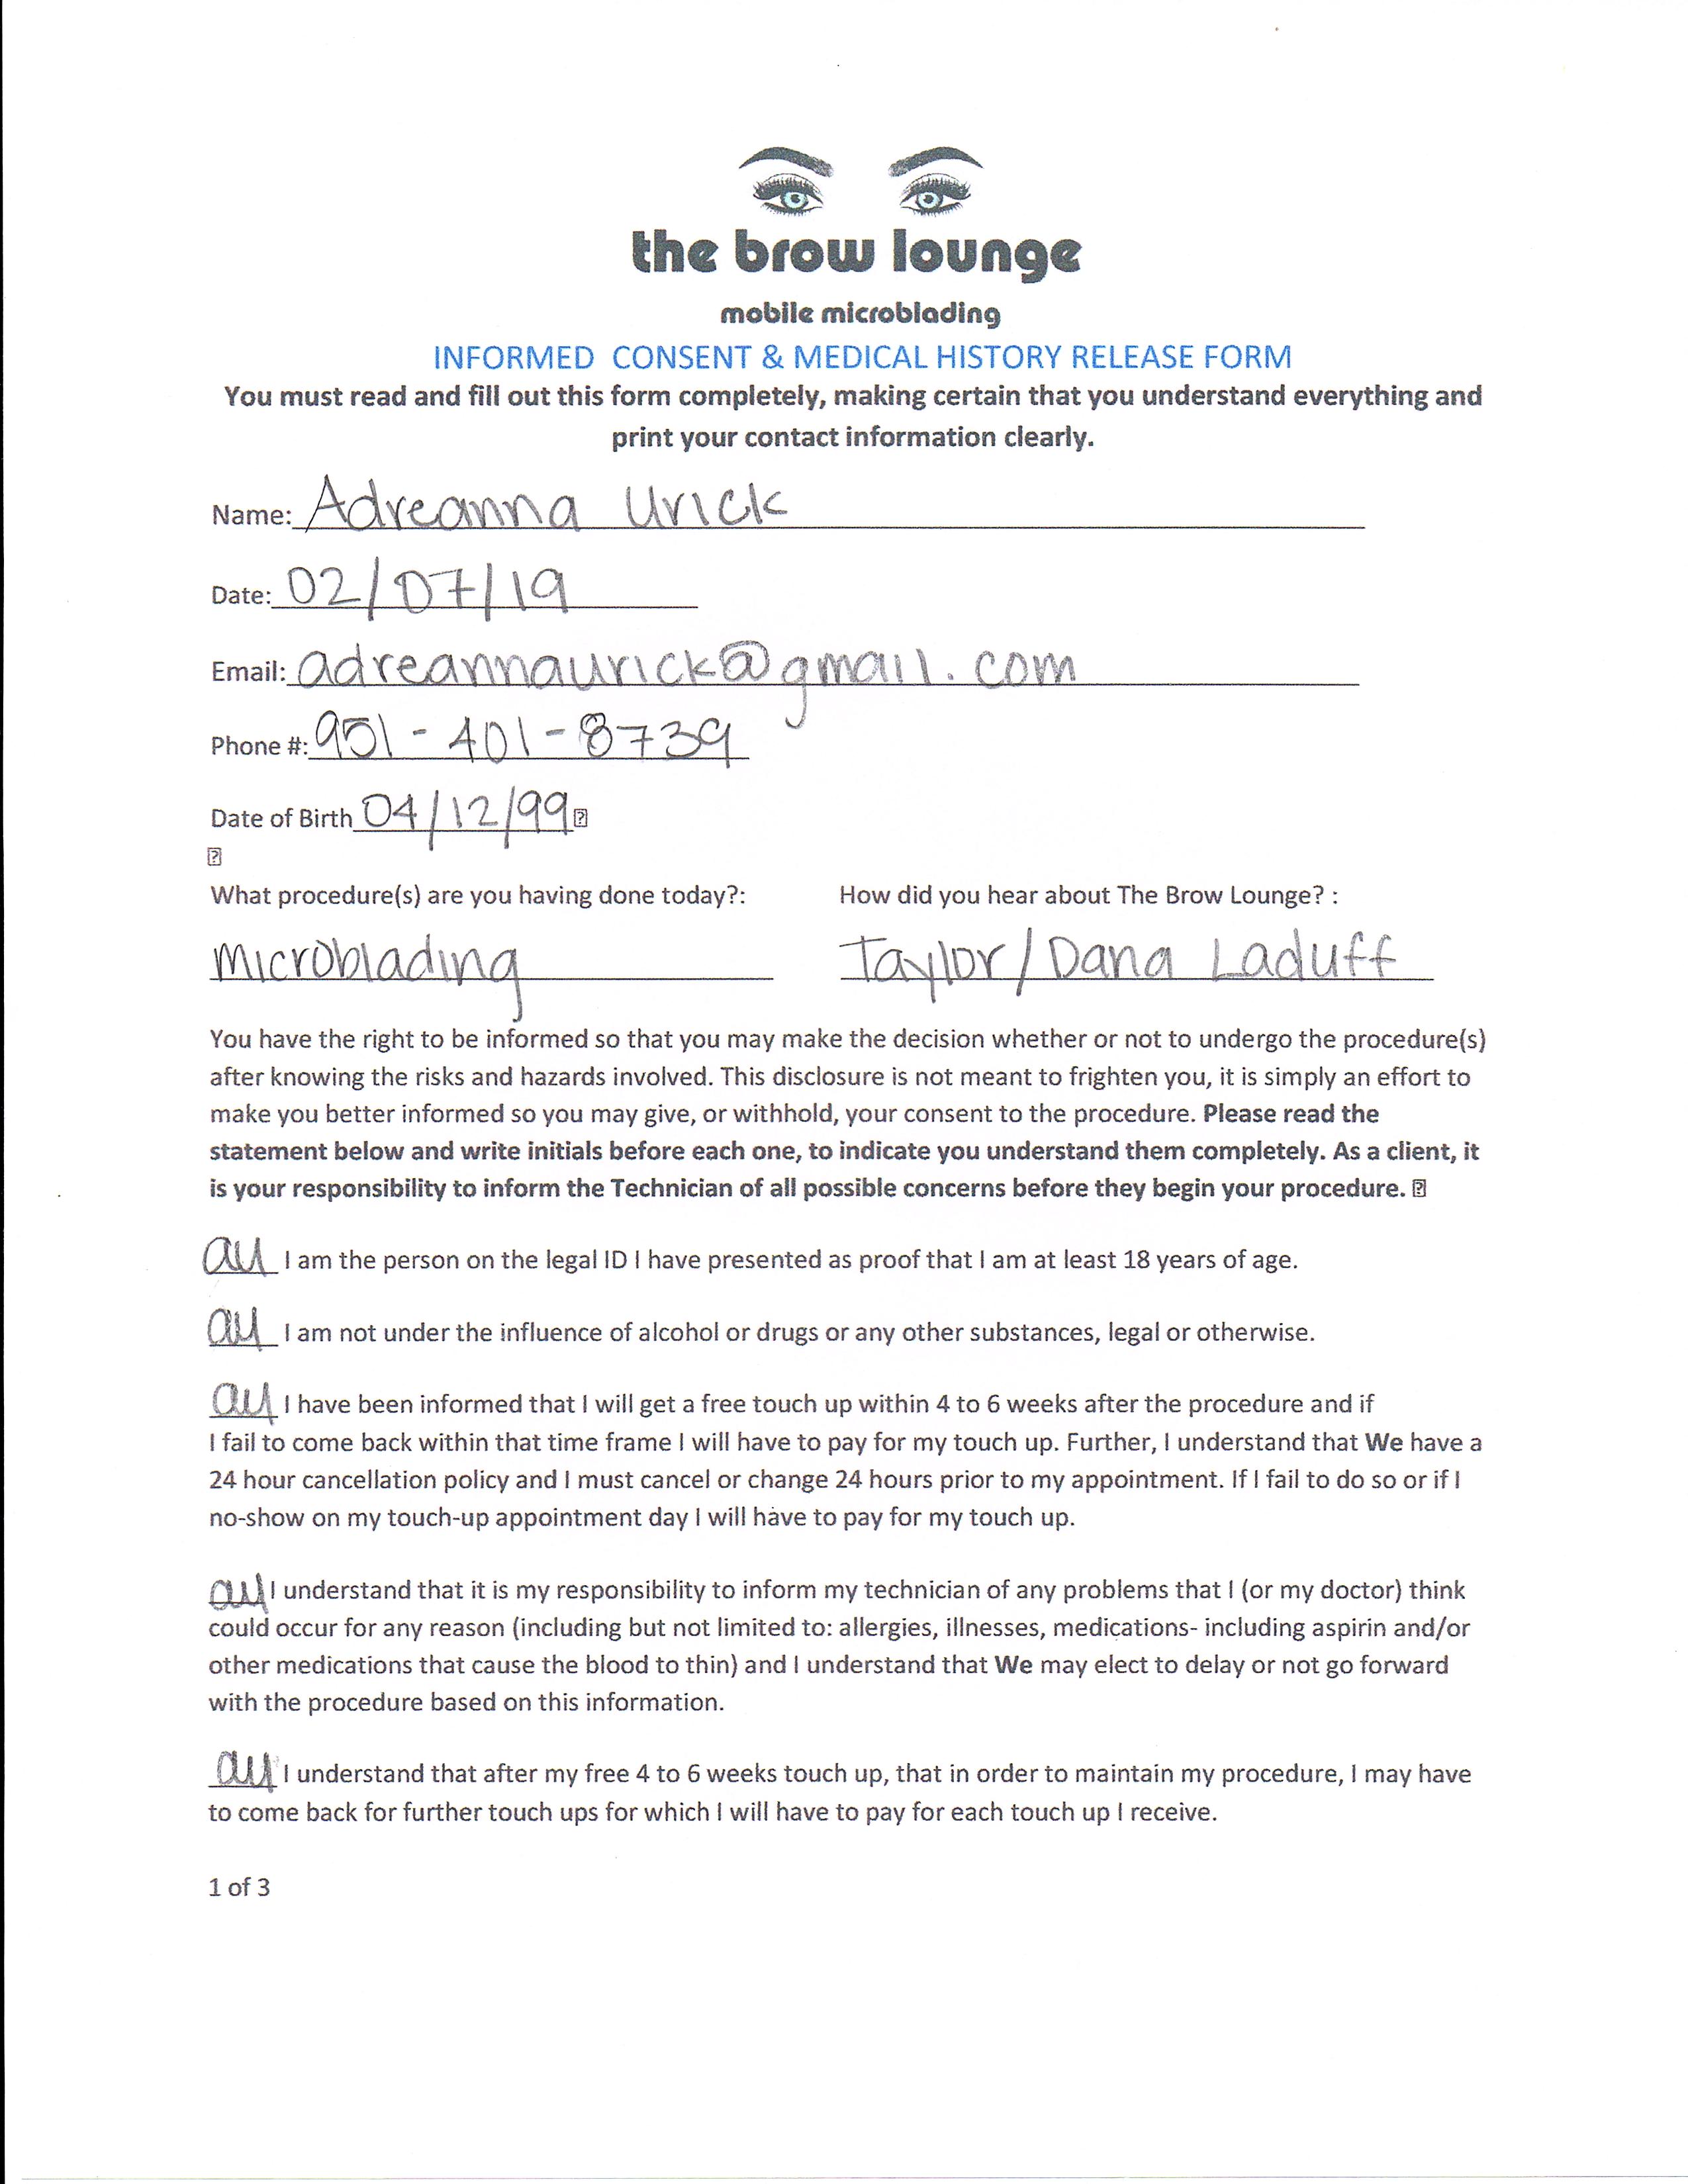 the brow lounge
mobile microblading
INFORMED CONSENT & MEDICAL HISTORY RELEASE FORM
You must read and fill out this form completely, making certain that you understand everything and
print your contact information clearly.
Name: Adreanna Urick
Date: 02/07/19
Email: adreannaurick@gmail.com
Phone #: 951-401-8739
Date of Birth 04/12/99
What procedure(s) are you having done today?: How did you hear about The Brow Lounge? :
Microblading Taylor/Dana Laduff
You have the right to be informed so that you may make the decision whether or not to undergo the procedure(s)
after knowing the risks and hazards involved. This disclosure is not meant to frighten you, it is simply an effort to
make you better informed so you may give, or withhold, your consent to the procedure. Please read the
statement below and write initials before each one, to indicate you understand them completely. As a client, it
is your responsibility to inform the Technician of all possible concerns before they begin your procedure.
au I am the person on the legal ID I have presented as proof that I am at least 18 years of age.
au I am not under the influence of alcohol or drugs or any other substances, legal or otherwise.
au I have been informed that I will get a free touch up within 4 to 6 weeks after the procedure and if
I fail to come back within that time frame I will have to pay for my touch up. Further, I understand that We have a
24 hour cancellation policy and I must cancel or change 24 hours prior to my appointment. If I fail to do so or if I
no-show on my touch-up appointment day I will have to pay for my touch up.
au I understand that it is my responsibility to inform my technician of any problems that I (or my doctor) think
could occur for any reason (including but not limited to: allergies, illnesses, medications- including aspirin and/or
other medications that cause the blood to thin) and I understand that We may elect to delay or not go forward
with the procedure based on this information.
au I understand that after my free 4 to 6 weeks touch up, that in order to maintain my procedure, I may have
to come back for further touch ups for which I will have to pay for each touch up I receive.
1 of 3